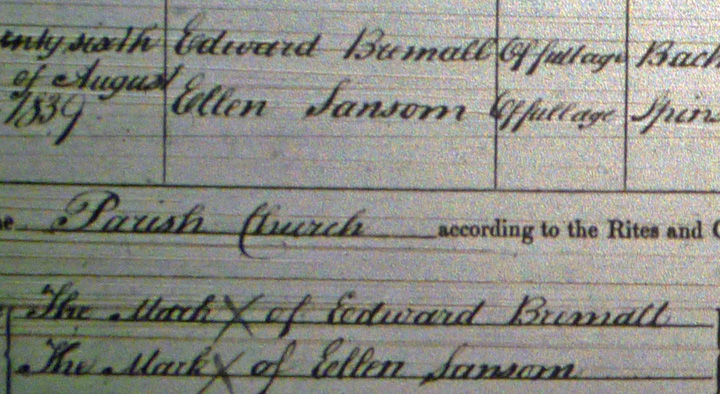 enty sixth Edward Bumall Of full age Bach
of August
1839. Ellen Sansom Of full age Spin
e Parish Church according to the Rites and C
The Mark X of Eedward Bumall
The Mark X of Ellen Sansom